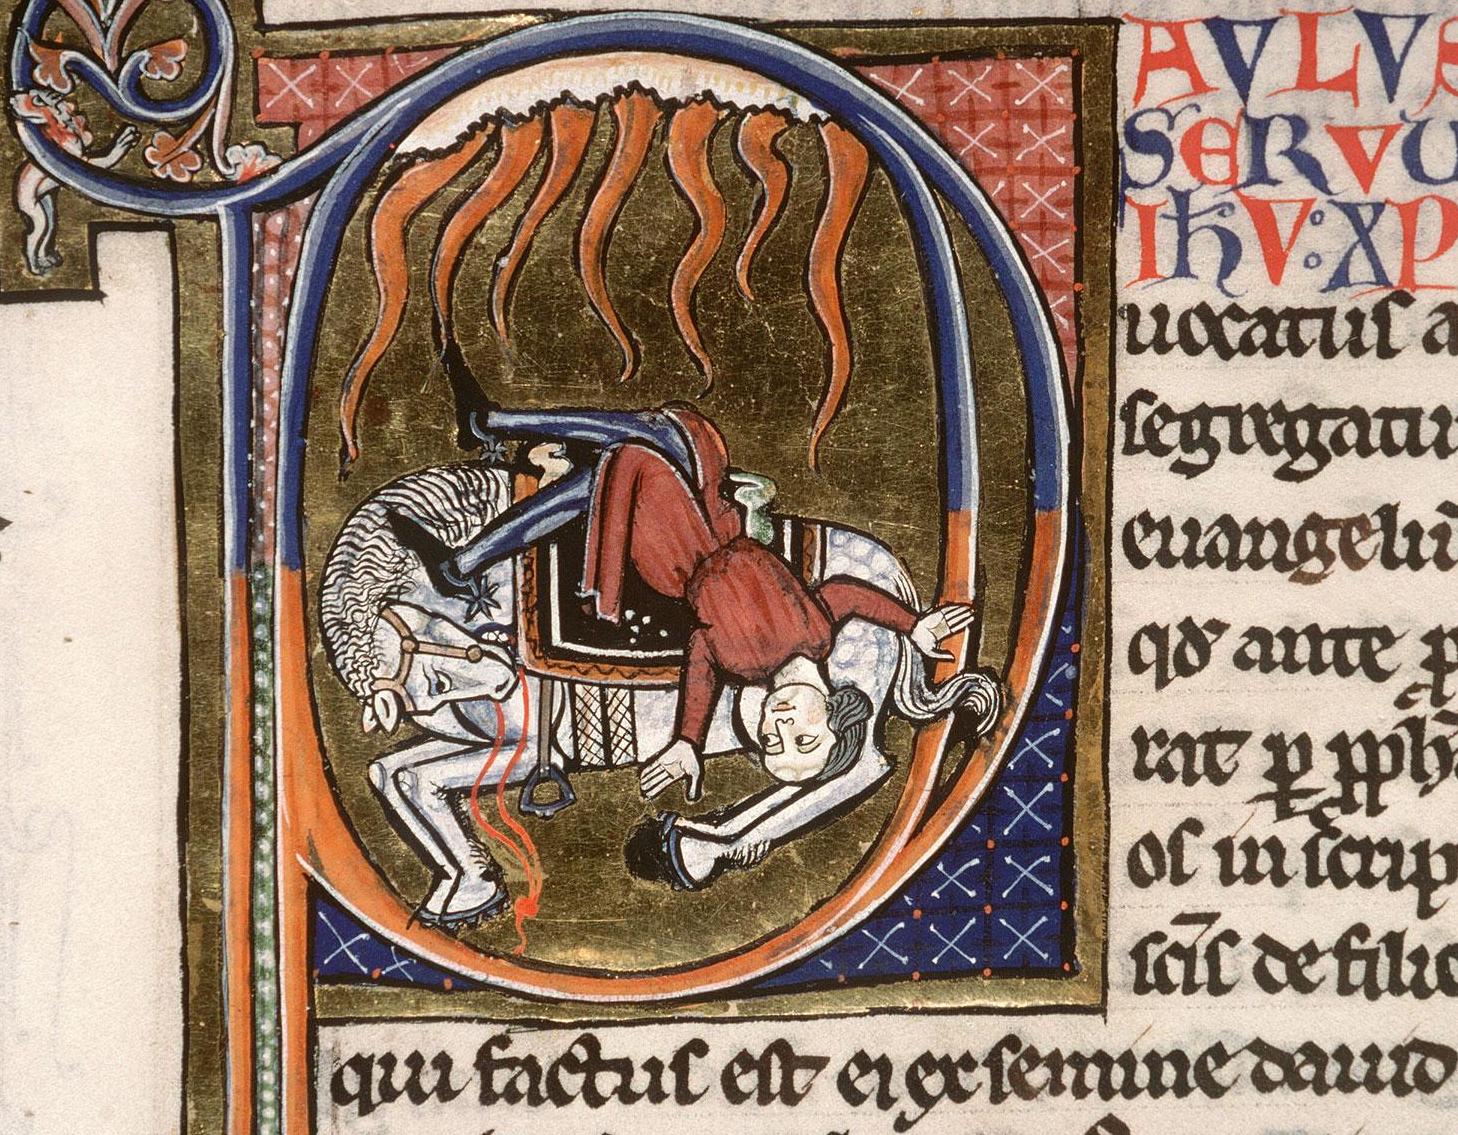 AVLVS
SERVU
IħV: XP
uocatus a
segregatu
euangeliū
qď ante p
rat p pph
os in scrip
scīs de filio
qui factus est ei ex semine dauid